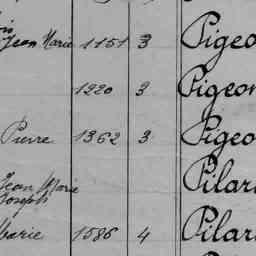 Jean Marie 1151 3 Pigeo
1220 3 Pigeon
Pierre 1362 3 Pigeo
Jean Marie Pilar
Joseph
Marie 1586 4 Pilar